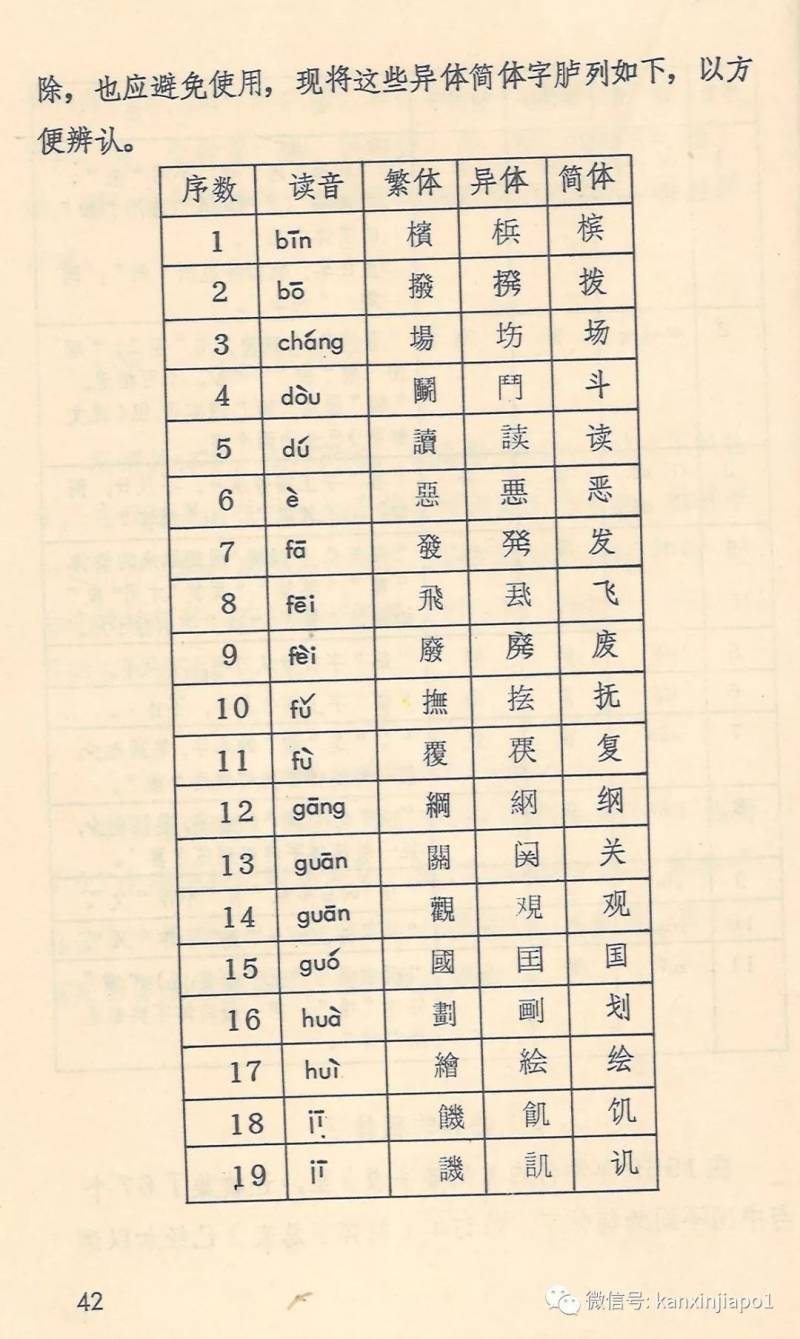 除，也应避免使用，现将这些异体简体字胪列如下，以方
便辨认。
序数 读音 繁体 异体 简体
1 bīn 檳 梹 槟
2 bō 撥 拨
3 cháng 場 场
4 dòu 鬭 鬥 斗
5 dú 讀 读
6 è 惡 悪 恶
7 fā 發 発 发
8 fēi 飛 飞
9 fèi 廢 廃 废
10 fǔ 撫 抚
11 fù 覆 复
12 gāng 綱 纲
13 guān 關 关
14 guān 觀 覌 观
15 guó 國 囯 国
16 huà 劃 划
17 huì 繪 絵 绘
18 jī 饑 飢 饥
19 jī 譏 讥
42
微信号: kanxinjiapo1